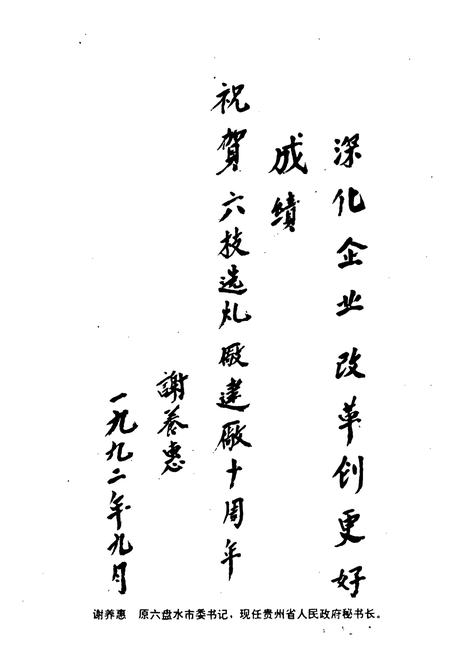 深化企业改革创更好
成绩
祝賀六枝选厰建厰十周年
謝养惠
一九九二年九月
谢养惠 原六盘水市委书记，现任贵州省人民政府秘书长。